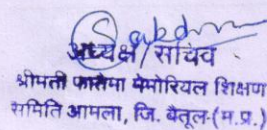 अध्यक्ष / सचिव
श्रीमती फातेमा मेमोरियल शिक्षण
समिति आमला, जि. बैतूल-(म.प्र.)